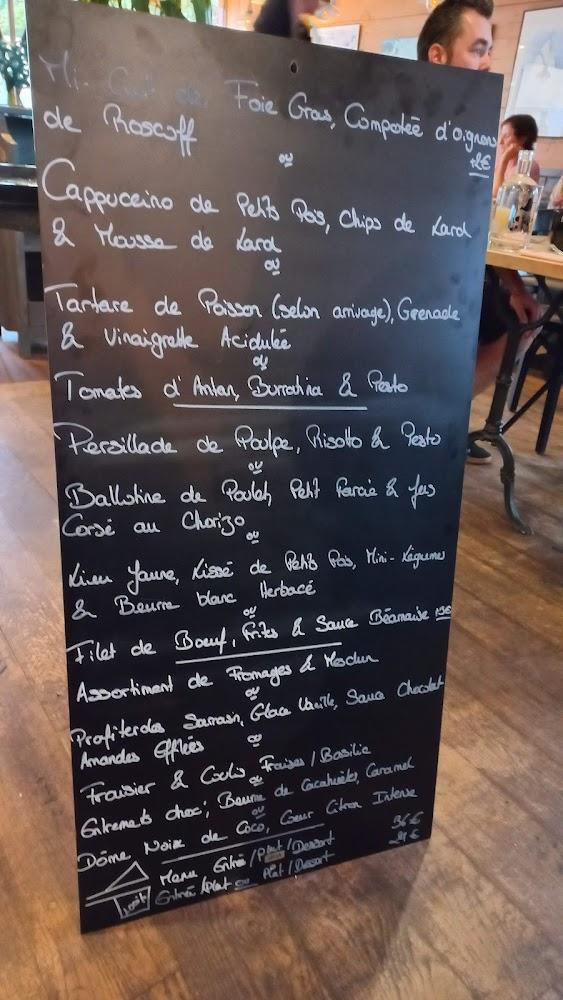 Mi-Cuit de Foie Gras, Compotée d'oignons
de Roscoff
+2€
ou
Cappuccino de Petits Pois, Chips de Lard
& Mousse de Lard
ou
Tartare de Poisson (selon arrivage), Grenade
& Vinaigrette Acidulée
ou
Tomates d'Antan, Burratina & Pesto
Persillade de Poulpe, Risotto & Pesto
ou
Ballotine de Poulet, Petit Farcie & Jus
Corsé au Chorizo
ou
Lieu Jaune, Lissé de Petits Pois, Mini-Légumes
& Beurre blanc Herbacé
ou
Filet de Boeuf, Frites & Sauce Béarnaise
Assortiment de Fromages & Mesclun
ou
Profiteroles Sarrasin, Glace Vanille, Sauce Chocolat
Amandes Effilées
ou
Fraisier & Coulis Fraises/Basilic
ou
Entremets choc', Beurre de Cacahuètes, Caramel
ou
Dôme Noix de Coco, Coeur Citron Intense
Menu Entrée/Plat/Dessert 36€
Entrée/Plat ou Plat/Dessert 29€